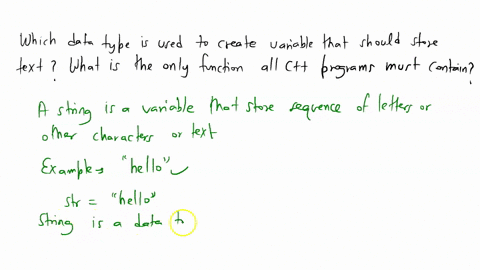 Which data type is used to create variable that should store
text? What is the only function all C++ programs must contain?
A string is a variable that store sequence of letters or
other characters or text
Example→ "hello"
str = "hello"
String is a data t